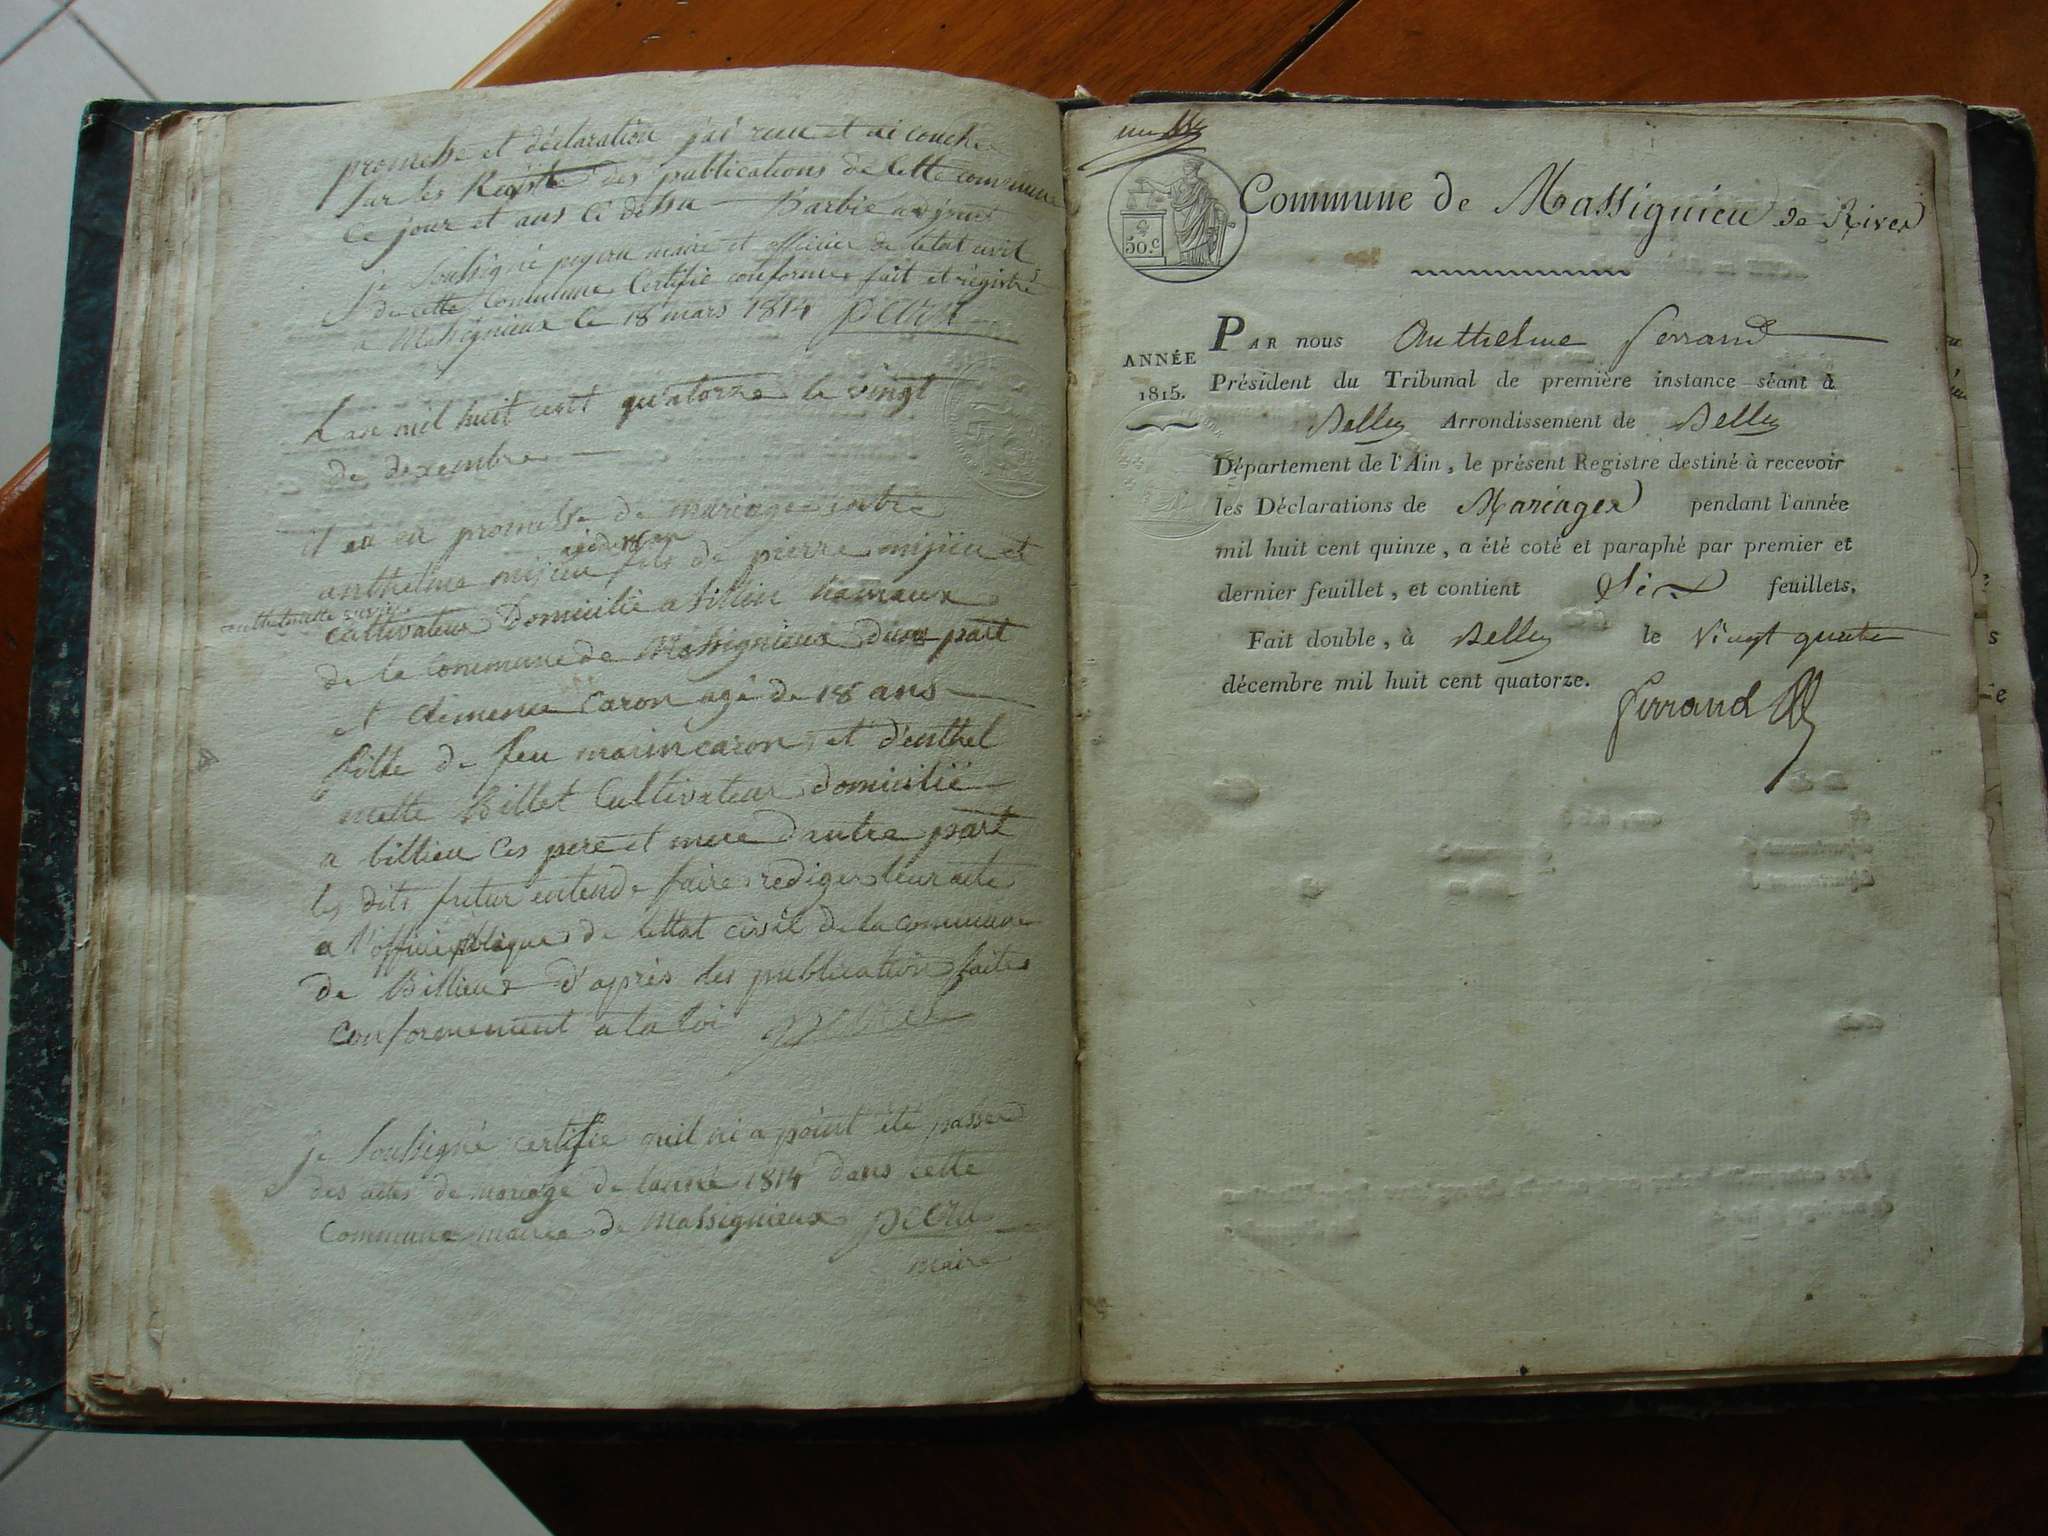 promesse et déclaration j'ai recu et ai couché
sur les Registre des publications de cette commune
ce jour et ans ci dessu — Barbie adjoint
je soussigné peyem maire et officier de letat civil
de cette commune Certifie conforme fait et régistré
a Massignieux le 18 mars 1814
Lan mil huit cent quatorze le vingt
de dexembre —
il ia eu promesse de mariage entre
anthelme mijieu fils de pierre mijieu et
cultivateur Domicilié a hamaux
de la Commune de Massignieux dune part
et Clemence Caron agé de 18 ans
fille de feu marin caron et d'enthel
mette Billet Cultivateur domicilié
a billieu ces pere et mere dautre part
les dits futur entende faire rediger leur acte
a l'office plique de lettat civil de la commune
de Billieux d'après les publication faites
conformement a la loi
je soussigné certifie quil ni a point été passer
des actes de mariage de lanné 1814 dans cette
Commune mairie de Massignieux
maire
50.c
Commune de Massignieu de Rives
ANNÉE
1815.
PAR nous Anthelme Ferrand
Président du Tribunal de première instance séant à
Belley Arrondissement de Belley
Département de l'Ain, le présent Registre destiné à recevoir
les Déclarations de Mariages pendant l'année
mil huit cent quinze, a été coté et paraphé par premier et
dernier feuillet, et contient Six feuillets.
Fait double, à Belley le vingt quatre
décembre mil huit cent quatorze.
Ferrand